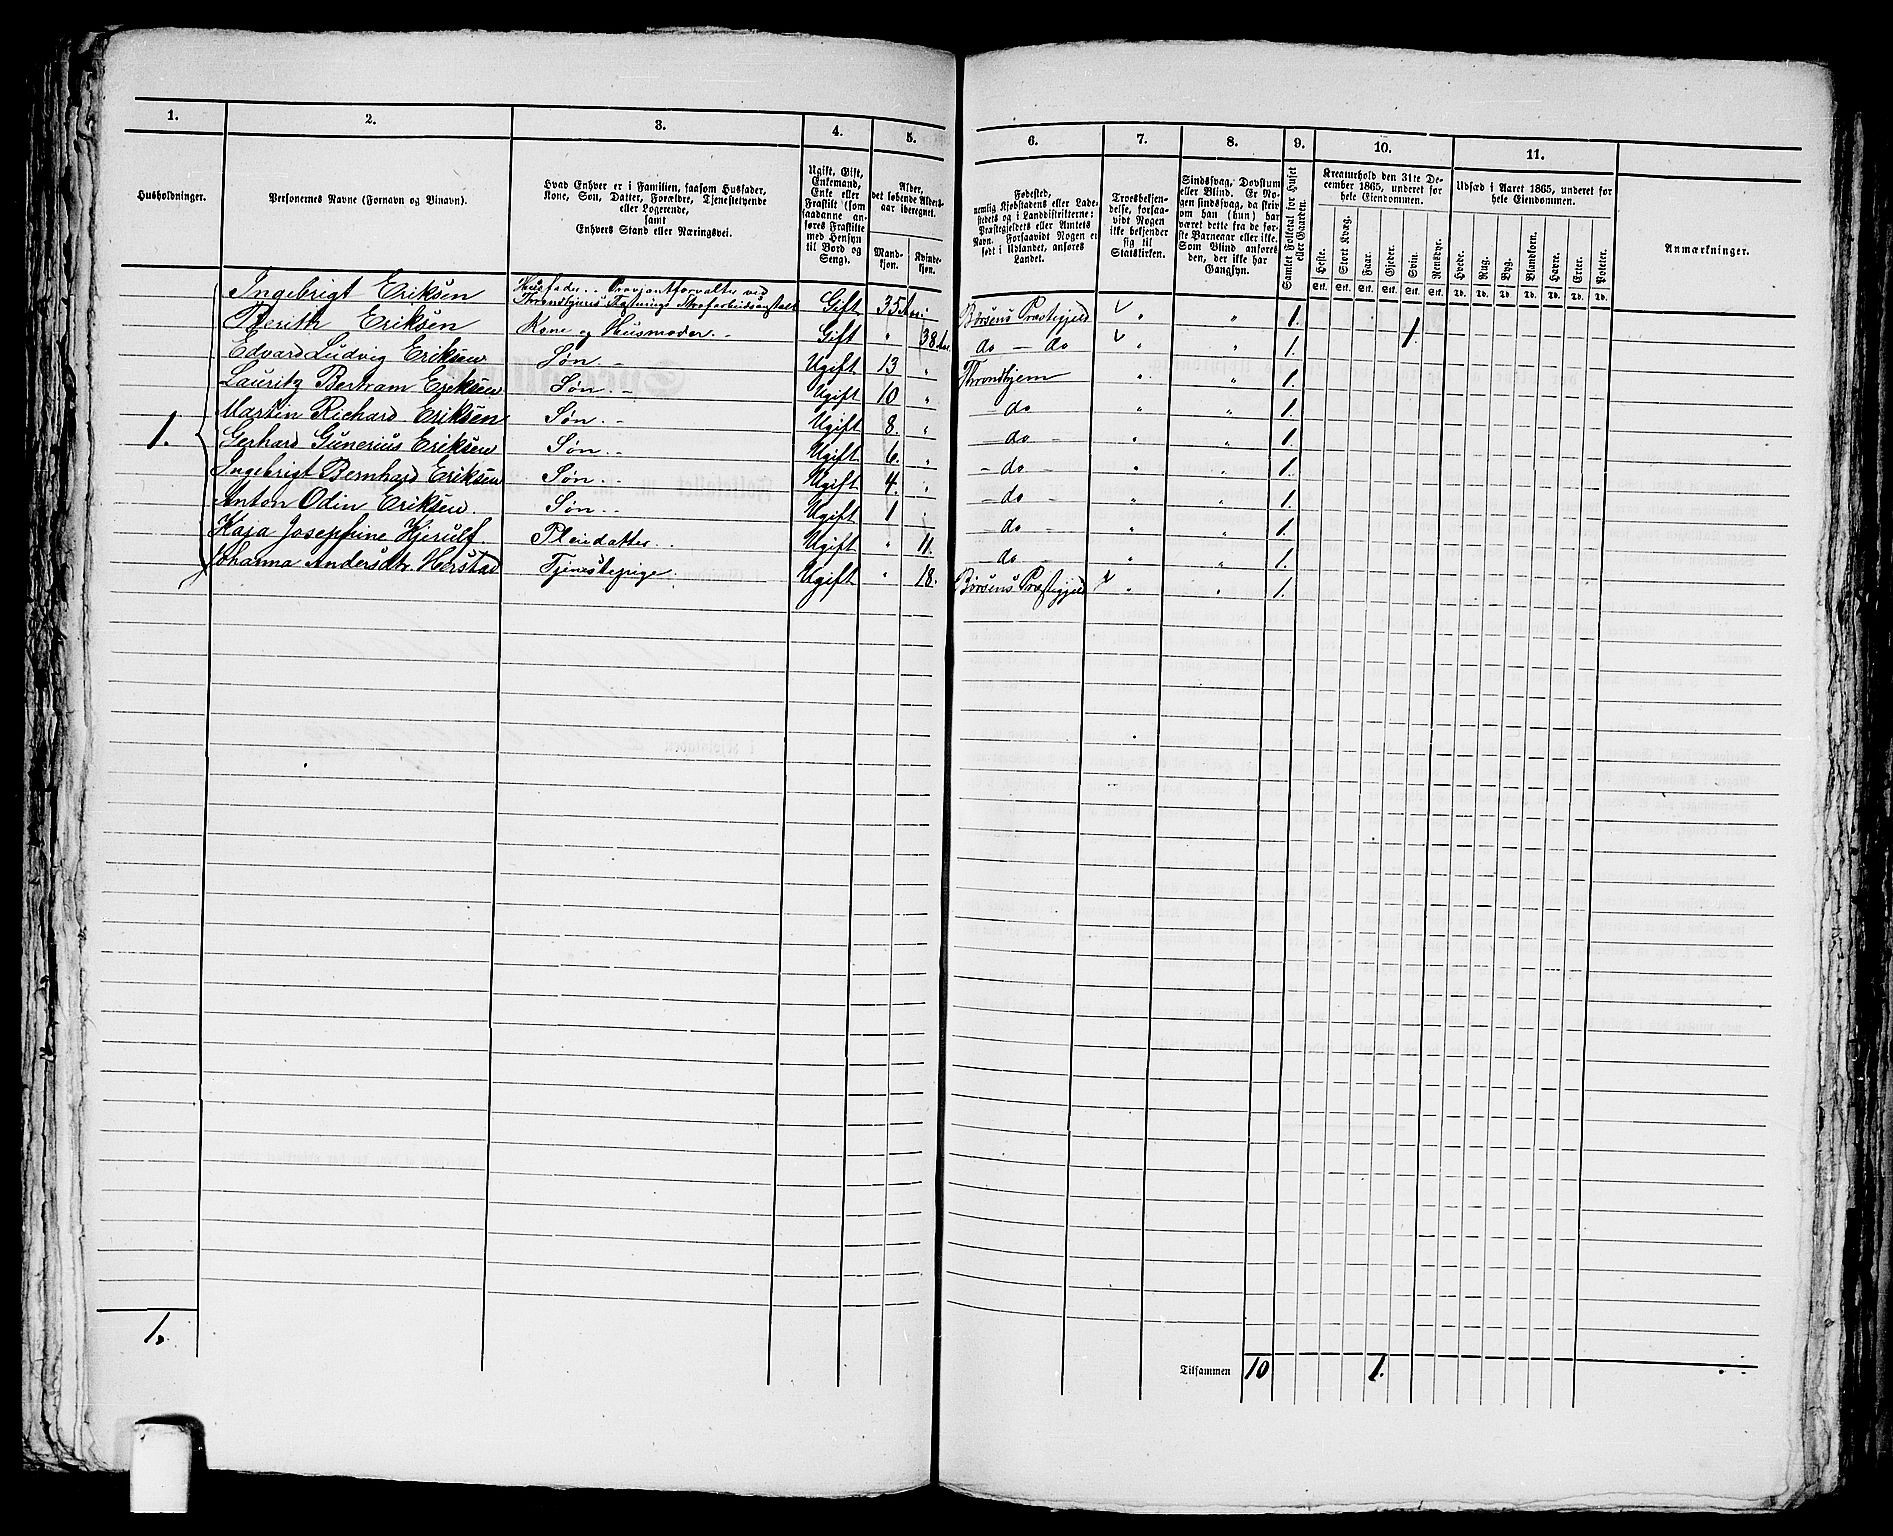 1. 2. 3. 4. 5. 6. 7. 8. 9. 10. 11.
Husholdninger.
Personernes Navne (Fornavn og Binavn).
Hvad Enhver er i Familien, saasom Husfader,
Kone, Søn, Datter, Forældre, Tjenestetyende
eller Logerende,
samt
Enhvers Stand eller Næringsvei.
Ugift, Gift,
Enkemand,
Enke eller
Fraskilt (som
saadanne an-
føres Fraskilte
med Hensyn
til Bord og
Seng).
Alder,
det løbende Alders-
aar iberegnet.
Mand-
kjøn.
Kvinde-
kjøn.
Fødested,
nemlig Kjøbstadens eller Lade-
stedets og i Landdistrikterne:
Præstegjeldets eller Amtets
Navn. Forsaavidt Nogen er
født i Udlandet, anføres
Landet.
Troesbekjen-
delse, forsaa-
vidt Nogen
ikke bekjender
sig til
Statskirken.
Sindssvag, Døvstum
eller Blind. Er No-
gen sindssvag, da skriv
om han (hun) har
været dette fra de før-
ste Barneaar eller ikke.
Som Blind anføres
den, der ikke har
Gangsyn.
Samlet Folketal for Huset
eller Gaarden.
Kreaturhold den 31te De-
cember 1865, underet for
hele Eiendommen.
Heste. Stort Kvæg. Faar. Gjeder. Svin. Rensdyr.
Stk. Stk. Stk. Stk. Stk. Stk.
Udsæd i Aaret 1865, underet for
hele Eiendommen.
Hvede. Rug. Byg. Blandkorn. Havre. Erter. Poteter.
Td. Td. Td. Td. Td. Td. Td.
Anmærkninger.
1.
Ingebrigt Eriksen Husfader. Proviantforvalter ved
Throndhjems Tugtnings Strafarbeidsanstalt Gift 35 Aar Børsens Præstegjeld " " 1.
Berith Eriksen Kone og Husmoder. Gift " 38 Aar do - do " " 1. 1.
Edvard Ludvig Eriksen Søn Ugift 13 " Throndhjem " " 1.
Lauritz Bertram Eriksen Søn Ugift 10 " do " " 1.
Martin Richard Eriksen Søn Ugift 8. " do " " 1.
Gerhard Gunerius Eriksen Søn Ugift 6. " do " " 1.
Ingebrigt Bernhard Eriksen Søn Ugift 4. " do " " 1.
Anton Odin Eriksen Søn Ugift 1 " do " " 1.
Kaja Josephine Hjerulf Pleiedatter Ugift " 11. do " " 1.
Johanna Andersdtr. Herstad Tjenestepige Ugift " 18. Børsens Præstegjeld " " 1.
1.
Tilsammen 10 1.